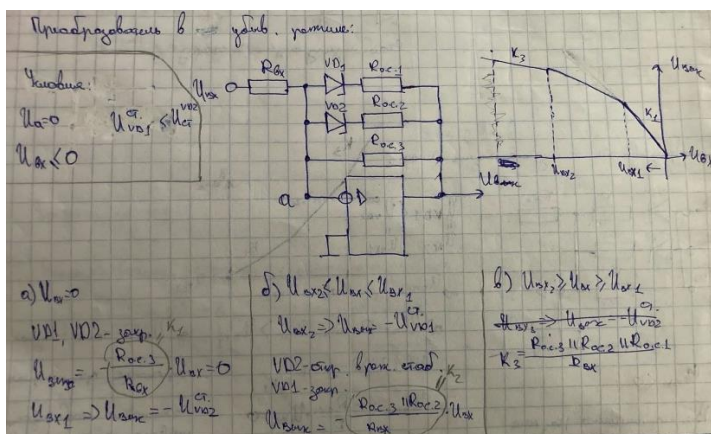 Преобразователь в убыв. режиме:
Условие:
Uа=0 U ст. VD1 ≤ U VD2 ст
Uвх ≤ 0
Uвх
Rвх
VD1
Rос.1
VD2
Rос.2
Rос.3
a
K3
Uвых
K1
Uвх
Uвх2
Uвх1 ←
а) Uвх=0
VD1, VD2 - закр.
K1
Uвых = - Rос.3 / Rвх · Uвх = 0
Uвх1 => Uвых = - U ст. VD2
б) Uвх2 ≤ Uвх ≤ Uвх1
Uвх2 => Uвых = - U ст. VD1
VD2 - откр. в реж. стаб.
VD1 - закр.
K2
Uвых = - Rос.3 || Rос.2 / Rвх · Uвх
в) Uвх2 ≥ Uвх ≥ Uвх1
Uвх3 => Uвых = - U ст. VD2
K3 = Rос.3 || Rос.2 || Rос.1 / Rвх